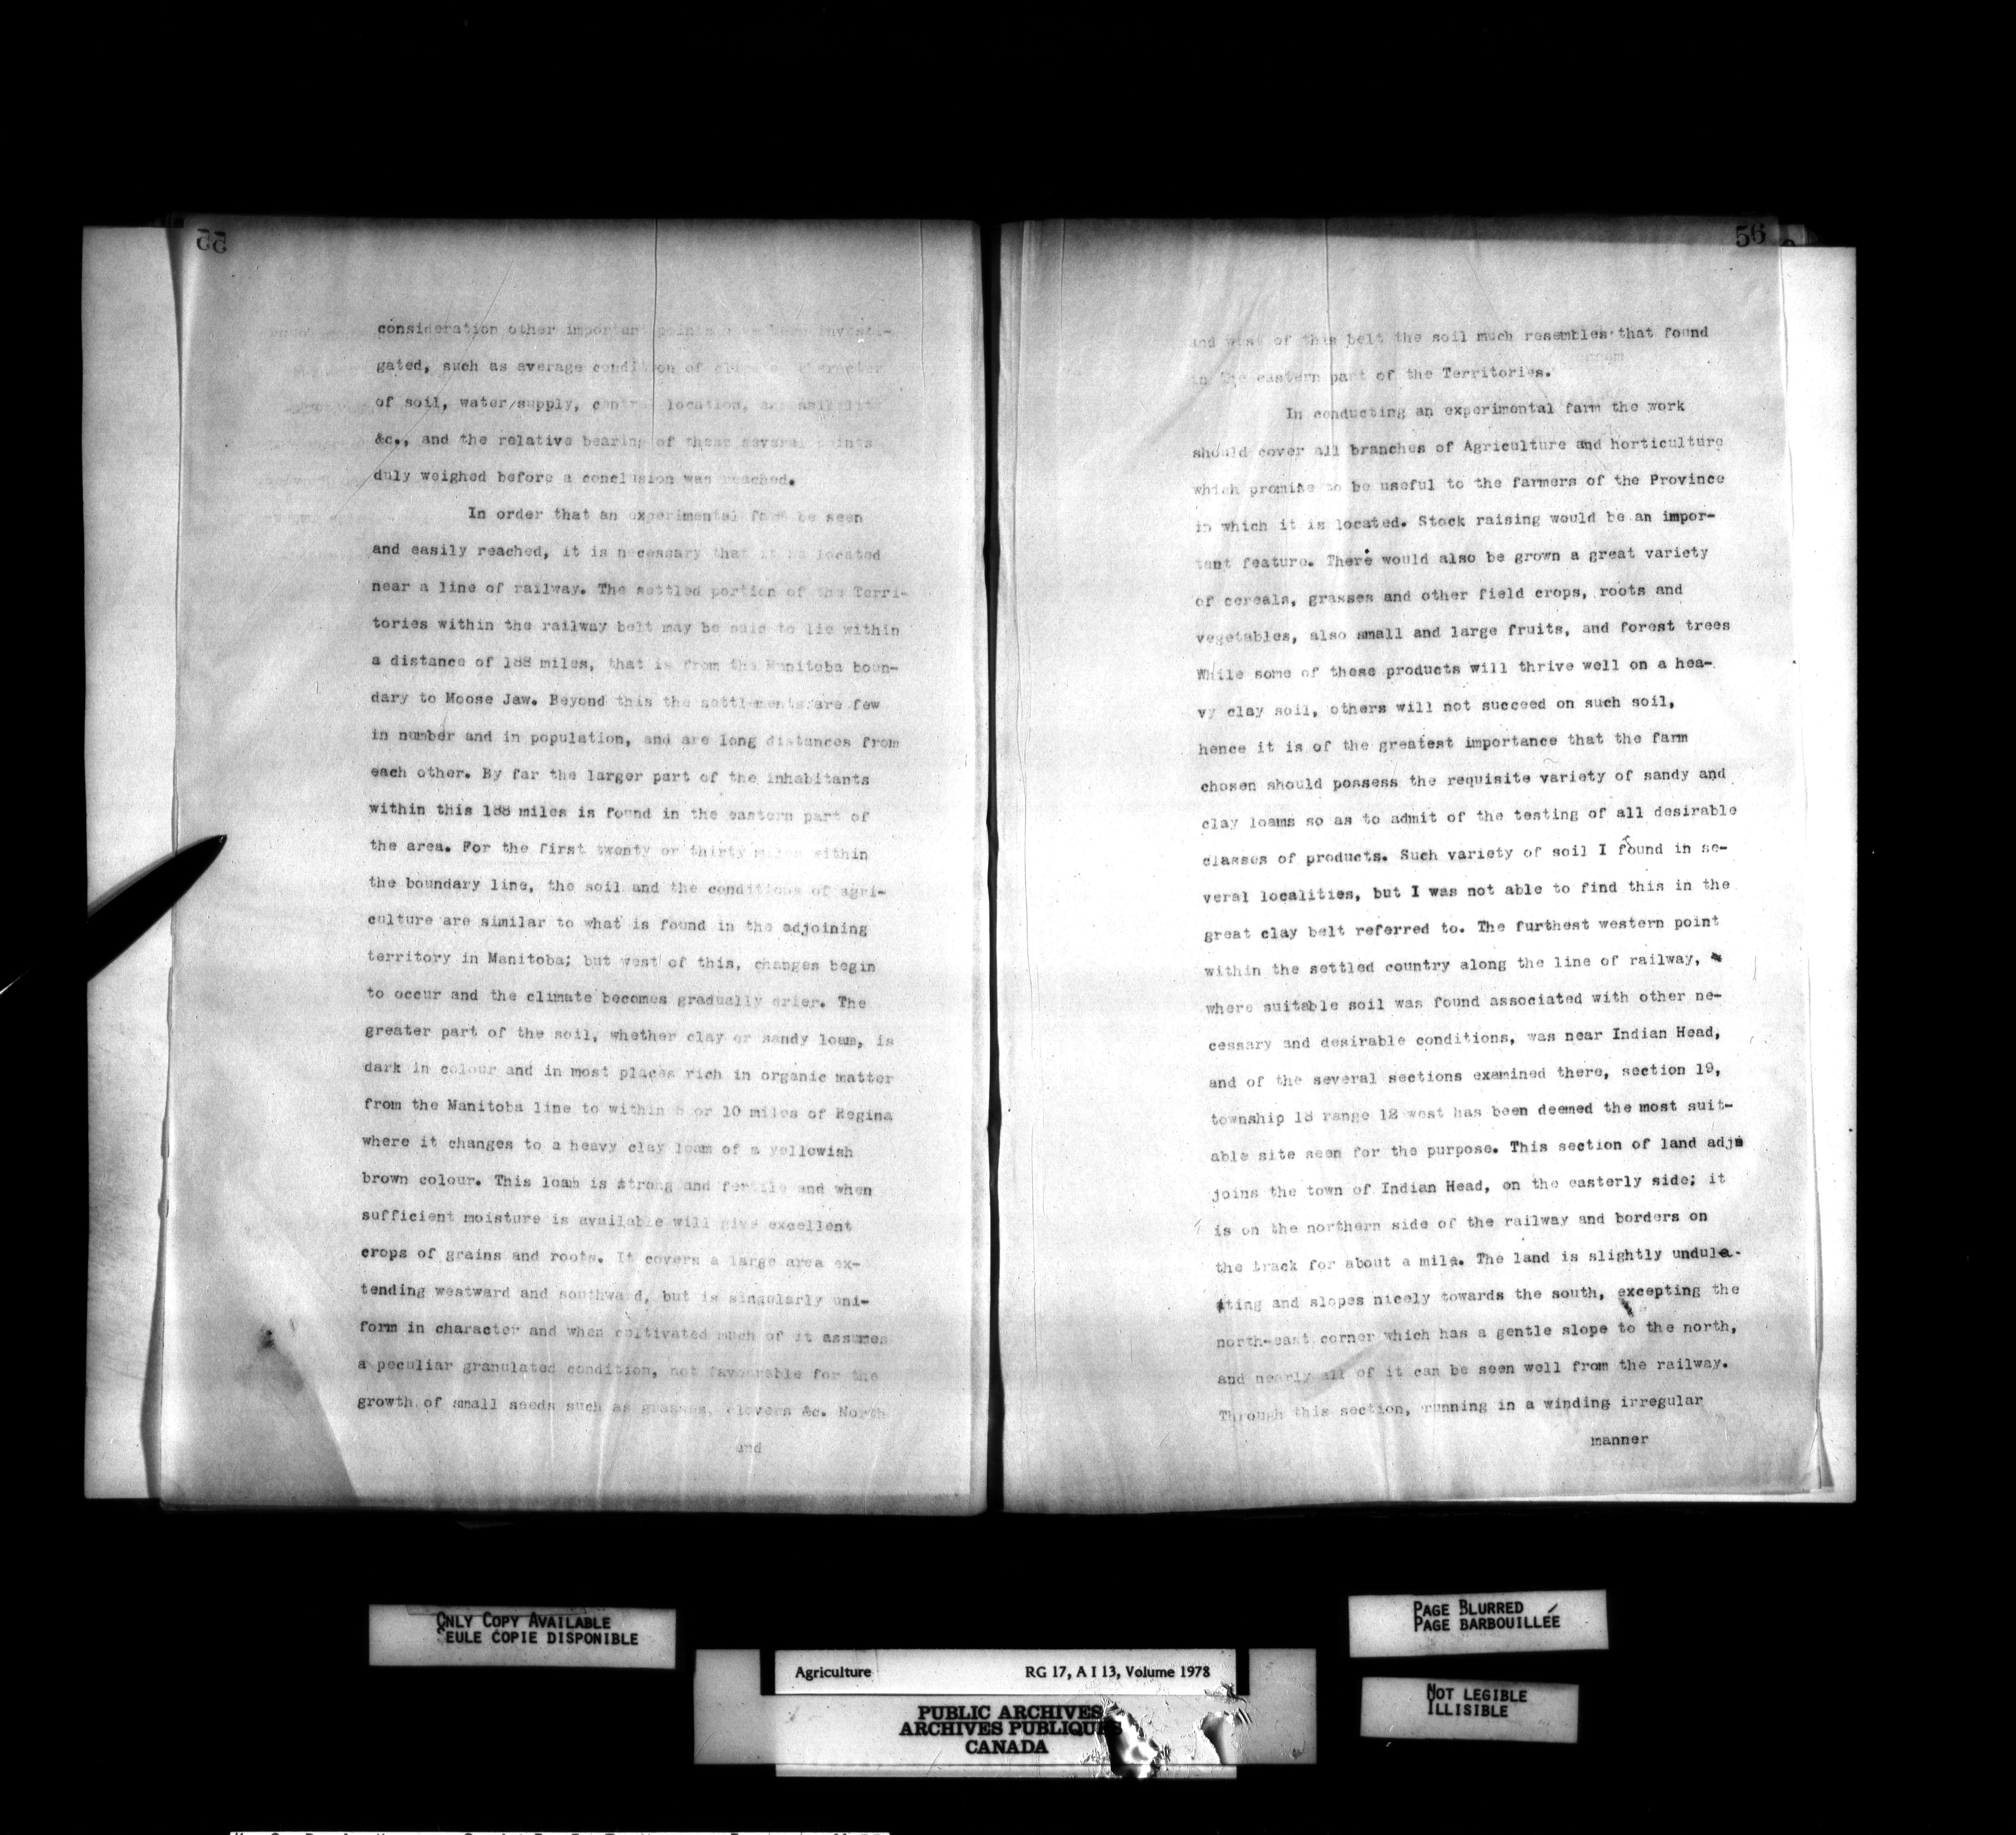 55
consideration other important points have been investi-
gated, such as average condition of climate, character
of soil, water supply, central location, accessibility
&c., and the relative bearing of these several points
duly weighed before a conclusion was reached.
In order that an experimental farm be seen
and easily reached, it is necessary that it be located
near a line of railway. The settled portion of the Terri-
tories within the railway belt may be said to lie within
a distance of 188 miles, that is from the Manitoba boun-
dary to Moose Jaw. Beyond this the settlements are few
in number and in population, and are long distances from
each other. By far the larger part of the inhabitants
within this 188 miles is found in the eastern part of
the area. For the first twenty or thirty miles within
the boundary line, the soil and the conditions of agri-
culture are similar to what is found in the adjoining
territory in Manitoba; but west of this, changes begin
to occur and the climate becomes gradually drier. The
greater part of the soil, whether clay or sandy loam, is
dark in colour and in most places rich in organic matter
from the Manitoba line to within 8 or 10 miles of Regina
where it changes to a heavy clay loam of a yellowish
brown colour. This loam is strong and fertile and when
sufficient moisture is available will give excellent
crops of grains and roots. It covers a large area ex-
tending westward and southward, but is singularly uni-
form in character and when cultivated much of it assumes
a peculiar granulated condition, not favourable for the
growth of small seeds such as grasses, clovers &c. North
and
56
and west of this belt the soil much resembles that found
in the eastern part of the Territories.
In conducting an experimental farm the work
should cover all branches of Agriculture and horticulture
which promise to be useful to the farmers of the Province
in which it is located. Stock raising would be an impor-
tant feature. There would also be grown a great variety
of cereals, grasses and other field crops, roots and
vegetables, also small and large fruits, and forest trees
While some of these products will thrive well on a hea-
vy clay soil, others will not succeed on such soil,
hence it is of the greatest importance that the farm
chosen should possess the requisite variety of sandy and
clay loams so as to admit of the testing of all desirable
classes of products. Such variety of soil I found in se-
veral localities, but I was not able to find this in the
great clay belt referred to. The furthest western point
within the settled country along the line of railway,
where suitable soil was found associated with other ne-
cessary and desirable conditions, was near Indian Head,
and of the several sections examined there, section 19,
township 18 range 12 west has been deemed the most suit-
able site seen for the purpose. This section of land adj
joins the town of Indian Head, on the easterly side; it
is on the northern side of the railway and borders on
the track for about a mile. The land is slightly undula-
ting and slopes nicely towards the south, excepting the
north-east corner which has a gentle slope to the north,
and nearly all of it can be seen well from the railway.
Through this section, running in a winding irregular
manner
ONLY COPY AVAILABLE
SEULE COPIE DISPONIBLE
PAGE BLURRED
PAGE BARBOUILLÉE
Agriculture RG 17, A I 13, Volume 1978
NOT LEGIBLE
ILLISIBLE
PUBLIC ARCHIVES
ARCHIVES PUBLIQUES
CANADA